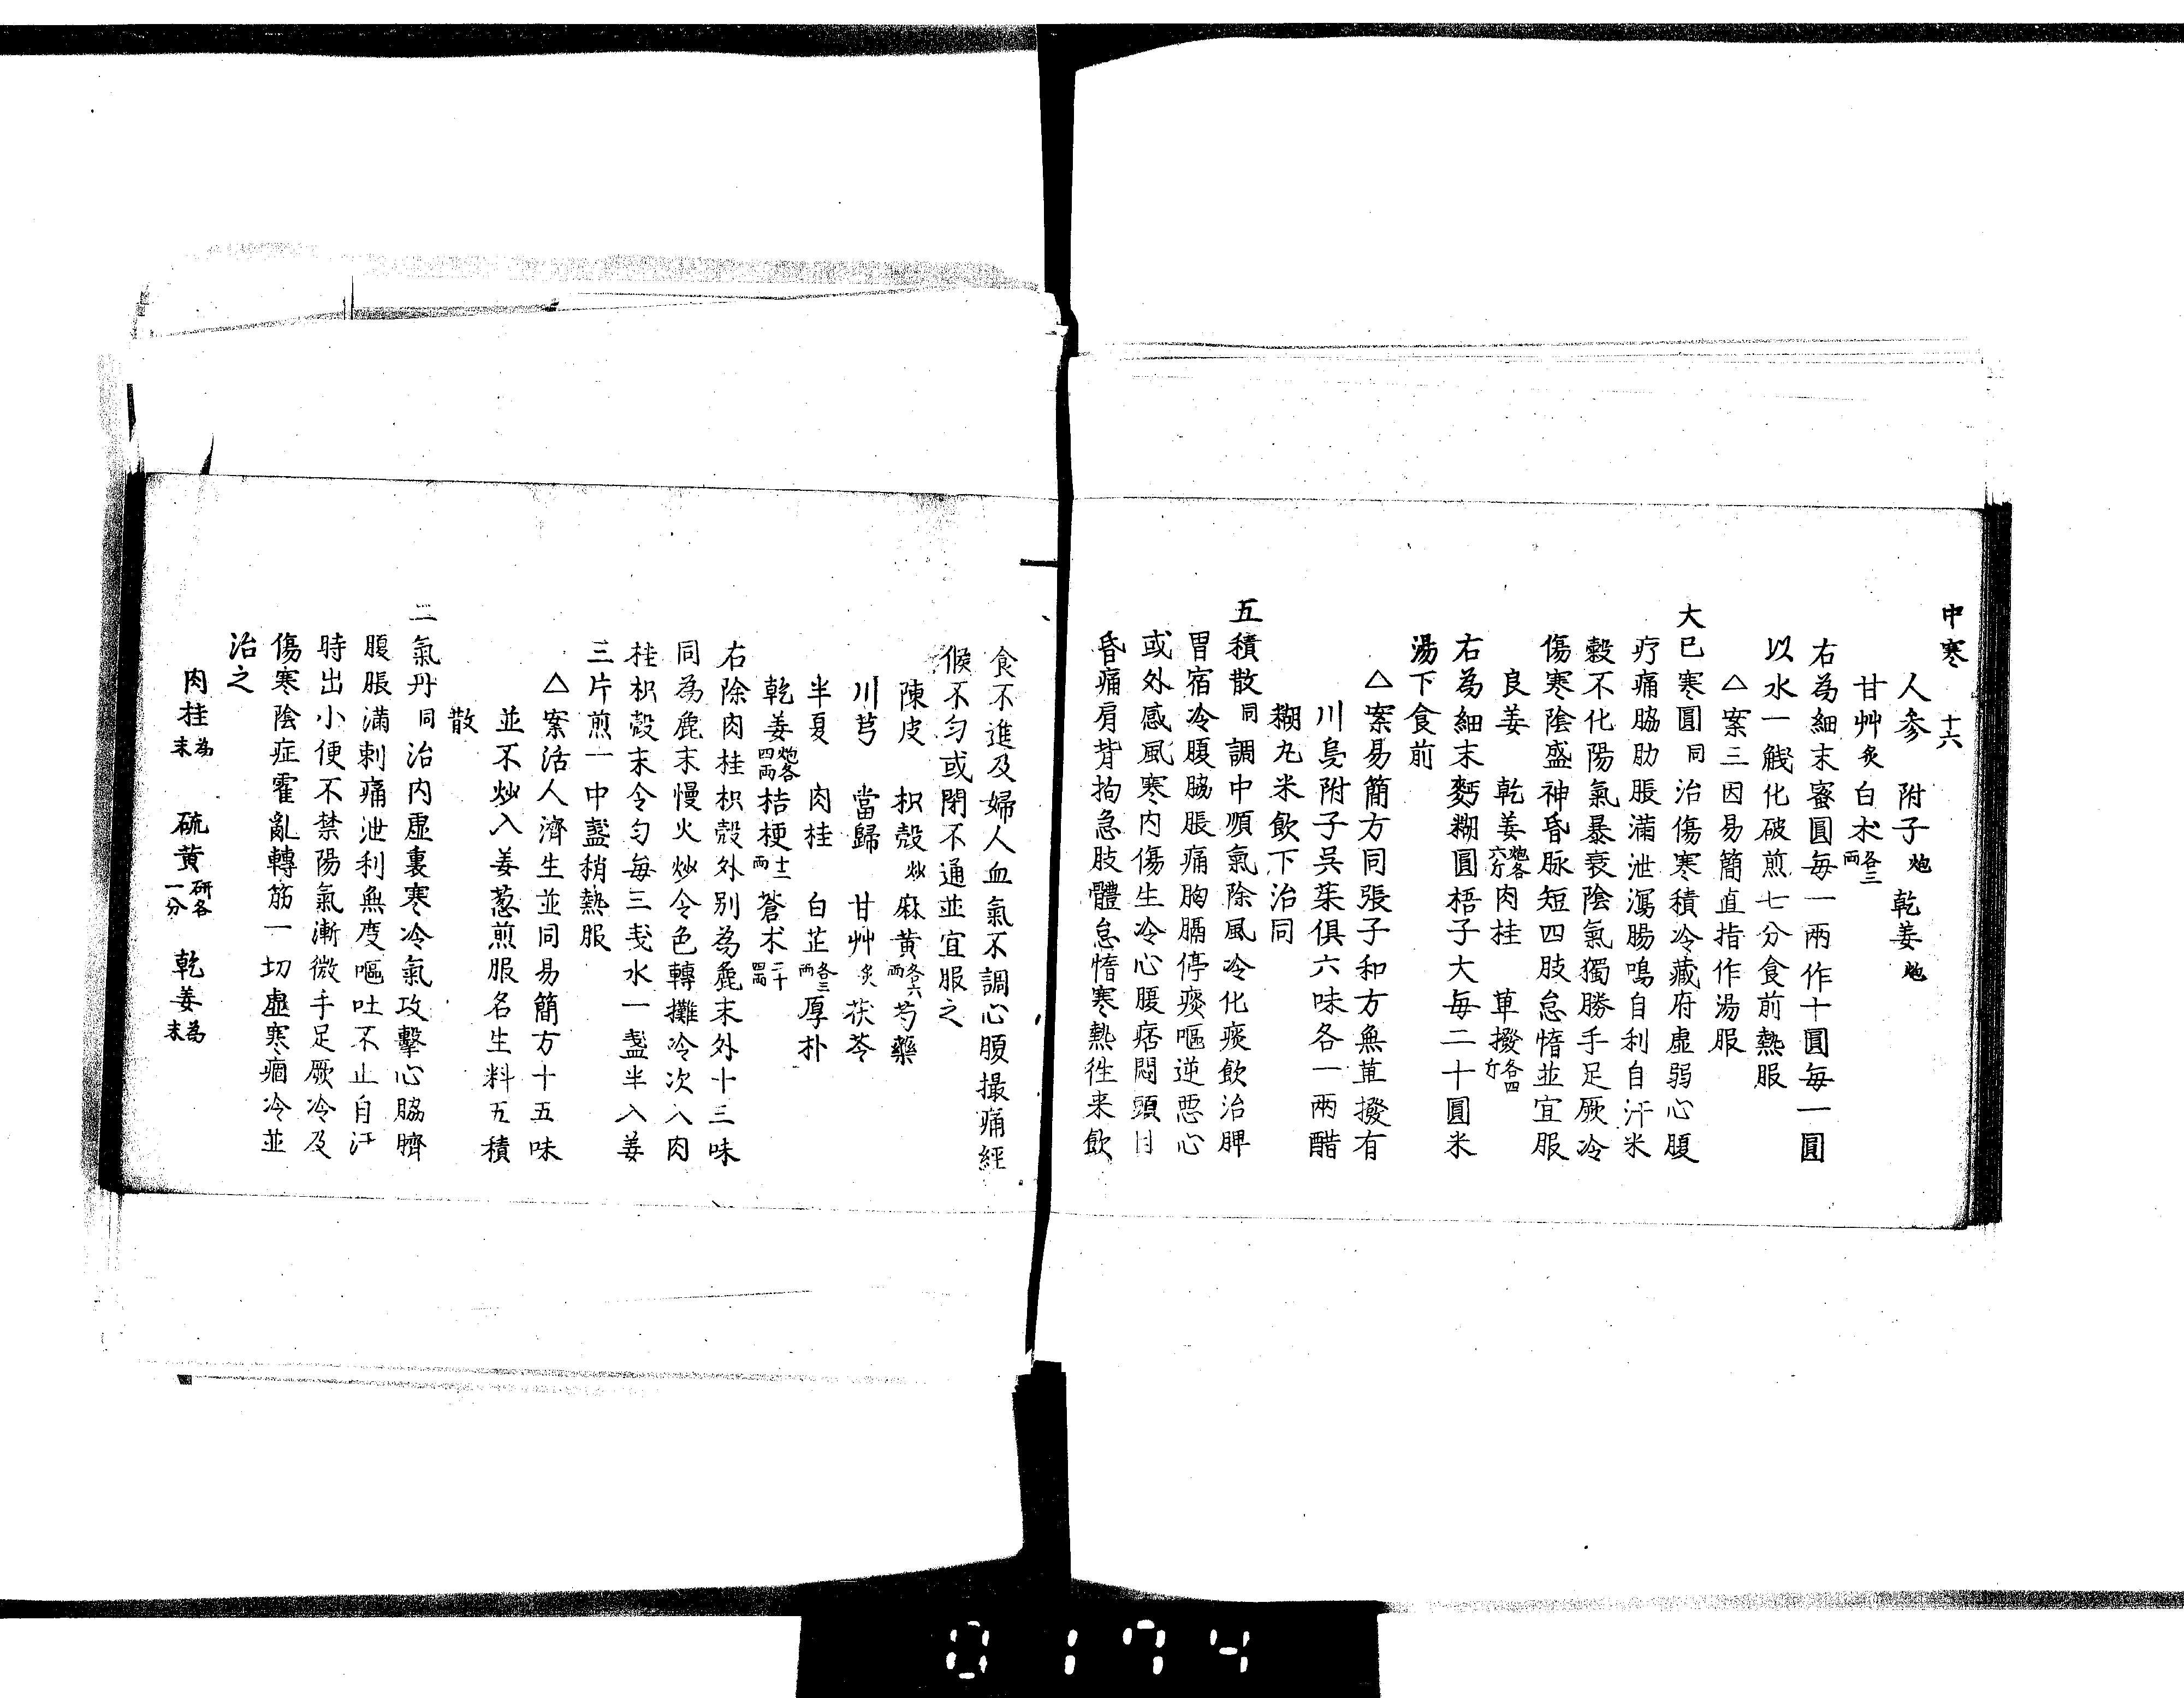 中寒 十六
人參 附子炮 乾姜炮
甘艸炙 白朮各三兩
右為細末蜜圓每一兩作十圓每一圓
以水一盞化破煎七分食前熱服
△案三因易簡直指作湯服
大已寒圓同 治傷寒積冷藏府虛弱心腹
疗痛脇肋脹滿泄瀉腸鳴自利自汗米
穀不化陽氣暴衰陰氣獨勝手足厥冷
傷寒陰盛神昏脉短四肢怠惰並宜服
良姜 乾姜炮各六斤 肉桂 蓽撥各四斤
右為細末麪糊圓梧子大每二十圓米
湯下食前
△案易簡方同張子和方無蓽撥有
川烏附子吳茱俱六味各一兩醋
糊丸米飲下治同
五積散同 調中順氣除風冷化痰飲治脾
胃宿冷腹脇脹痛胸膈停痰嘔逆惡心
或外感風寒內傷生冷心腹痞悶頭目
昏痛肩背拘急肢體怠惰寒熱徃来飲
食不進及婦人血氣不調心腹撮痛經
候不勻或閉不通並宜服之
陳皮 枳殼炒 麻黄各六兩 芍藥
川芎 當歸 甘艸炙 茯苓
半夏 肉桂 白芷各三兩 厚朴
乾姜炮各四兩 桔梗十二兩 蒼朮二十四兩
右除肉桂枳殼外別為麁末外十三味
同為麁末慢火炒令色轉攤冷次入肉
桂枳殼末令勻每三戔水一盞半入姜
三片煎一中盞稍熱服
△案活人濟生並同易簡方十五味
並不炒入姜葱煎服名生料五積
散
二氣丹同 治內虛裏寒冷氣攻擊心脇臍
腹脹滿刺痛泄利無度嘔吐不止自汗
時出小便不禁陽氣漸微手足厥冷及
傷寒陰症霍亂轉筋一切虛寒痼冷並
治之
肉桂為末 硫黄研各一分 乾姜為末
0174